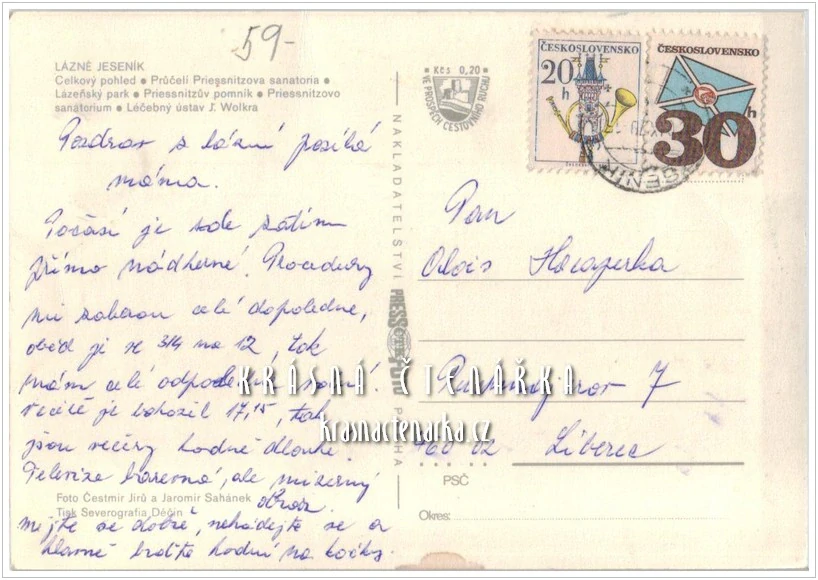 59-
LÁZNĚ JESENÍK
Celkový pohled ● Průčelí Priessnitzova sanatoria ●
Lázeňský park ● Priessnitzův pomník ● Priessnitzovo
sanatorium ● Léčebný ústav J. Wolkra
Pozdrav z lázní posílá
máma.
Počasí je zde zatím
přímo nádherné. Procedury
mi zaberou celé dopoledne,
oběd je ve 3/4 na 12, tak
mám celé odpoledne
večeře je 17,15, tak
jsou večery hodně dlouhé.
Televize barevná, ale mizerný
obraz.
Foto Čestmír Jírů a Jaromír Sahánek
Tisk Severografia Děčín
mějte se dobře, nehádejte se a
hlavně buďte hodní na kočky.
Kčs 0,20
VE PROSPĚCH CESTOVNÍHO RUCHU
NAKLADATELSTVÍ PRESSFOTO PRAHA
ČESKOSLOVENSKO
20 h
ČESKOSLOVENSKO
30 h
JESENÍK
Pan
Alois
7
460 02 Liberec
PSČ
Okres:
KRÁSNÁ ČTENÁŘKA
krasnactenarka.cz